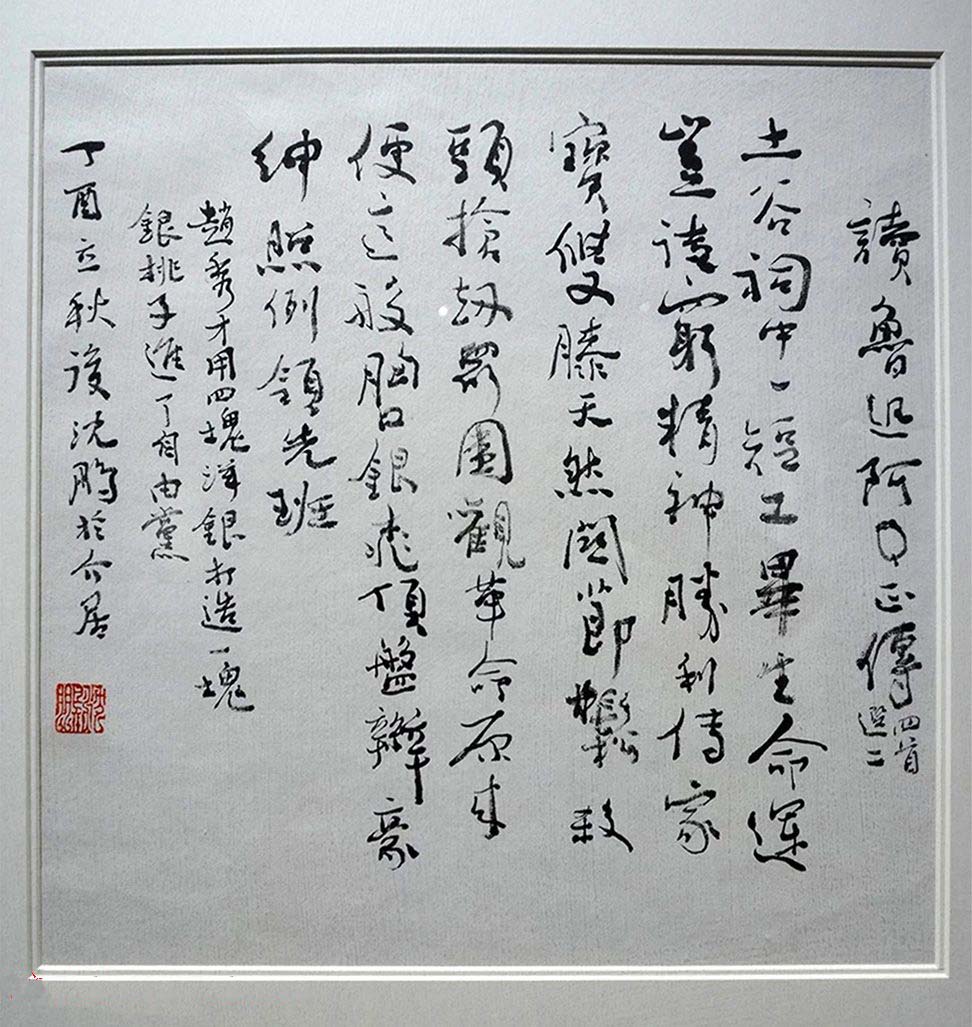 讀魯迅阿Q正傳
四首
選二
土谷祠中一短工畢生命運
豈窮精神勝利傳家
寶雙膝天然關節鬆殺
頭搶劫眾圍觀革命原來
便這般胸口銀桃頂盤辮豪
紳照例領先班
趙秀才用四塊洋銀打造一塊
銀桃子進了自由黨
丁酉立秋後沈鵬於介居